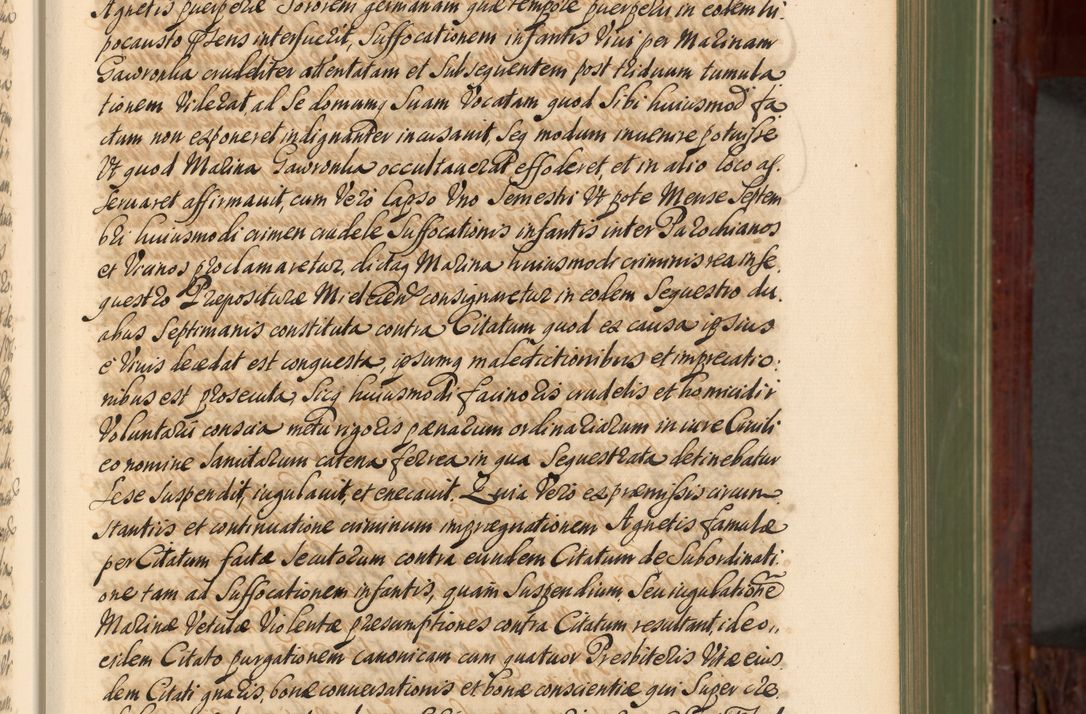 Agnetis puerperæ Sororem germanam quæ tempore puerperii in eodem hi,
pocausto pñsens interfuerit, Suffocationem infantis Vivi per Marinam
Gawronka crudeliter attentatam et Subsequentem post triduum tumula
tionem Viderat, ad Se domum Suam Vocatam quod Sibi huiusmodi fa
ctum non exponeret indignanter incusavit, Seq modum invenire potuisse
Vt quod Marina Gawronka occultaverat, effoderet, et in alio loco as,
servaret affirmavit, cum Vero lapso Vno Semestri Vt pote Mense Septem
bri huiusmodi crimen crudele Suffocationis infantis inter Parochianos
et Vicinos proclamaretur, dictaq Marina huiusmodi criminis rea in se,
questro Præposituræ Mielecen consignaretur in eodem Sequestro du,
abus Septimanis constituta contra Citatum quod ex causa ipsius
e Vivis decedat est conquesta, ipsumq maledictionibus et imprecatio,
nibus est prosecuta, Sicq huiusmodi facinoris crudelis et homicidii
Voluntarii conscia metu rigoris pænarum ordinariarum in iure Civili
eo nomine Sancitarum catena ferrea in qua Sequestrata detinebatur
Sese Suspendit, iugulavit, et enecavit. Quia Vero ex præmissis circum
stantiis et continuatione criminum imprægnationem Agnetis famulæ
per Citatum factæ Secutorum contra eundem Citatum de Subordinati,
one tam ad Suffocationem infantis, quam Suspendium, Seu iugulationē
Marinæ Vetulæ Violentæ præsumptiones contra Citatum resultant, ideo,,
eidem Citato purgationem canonicam cum quatuor Presbiteris Vitæ eius,
dem Citati gnaris, bonæ conversationis et bonæ conscientiæ qui Super cre,